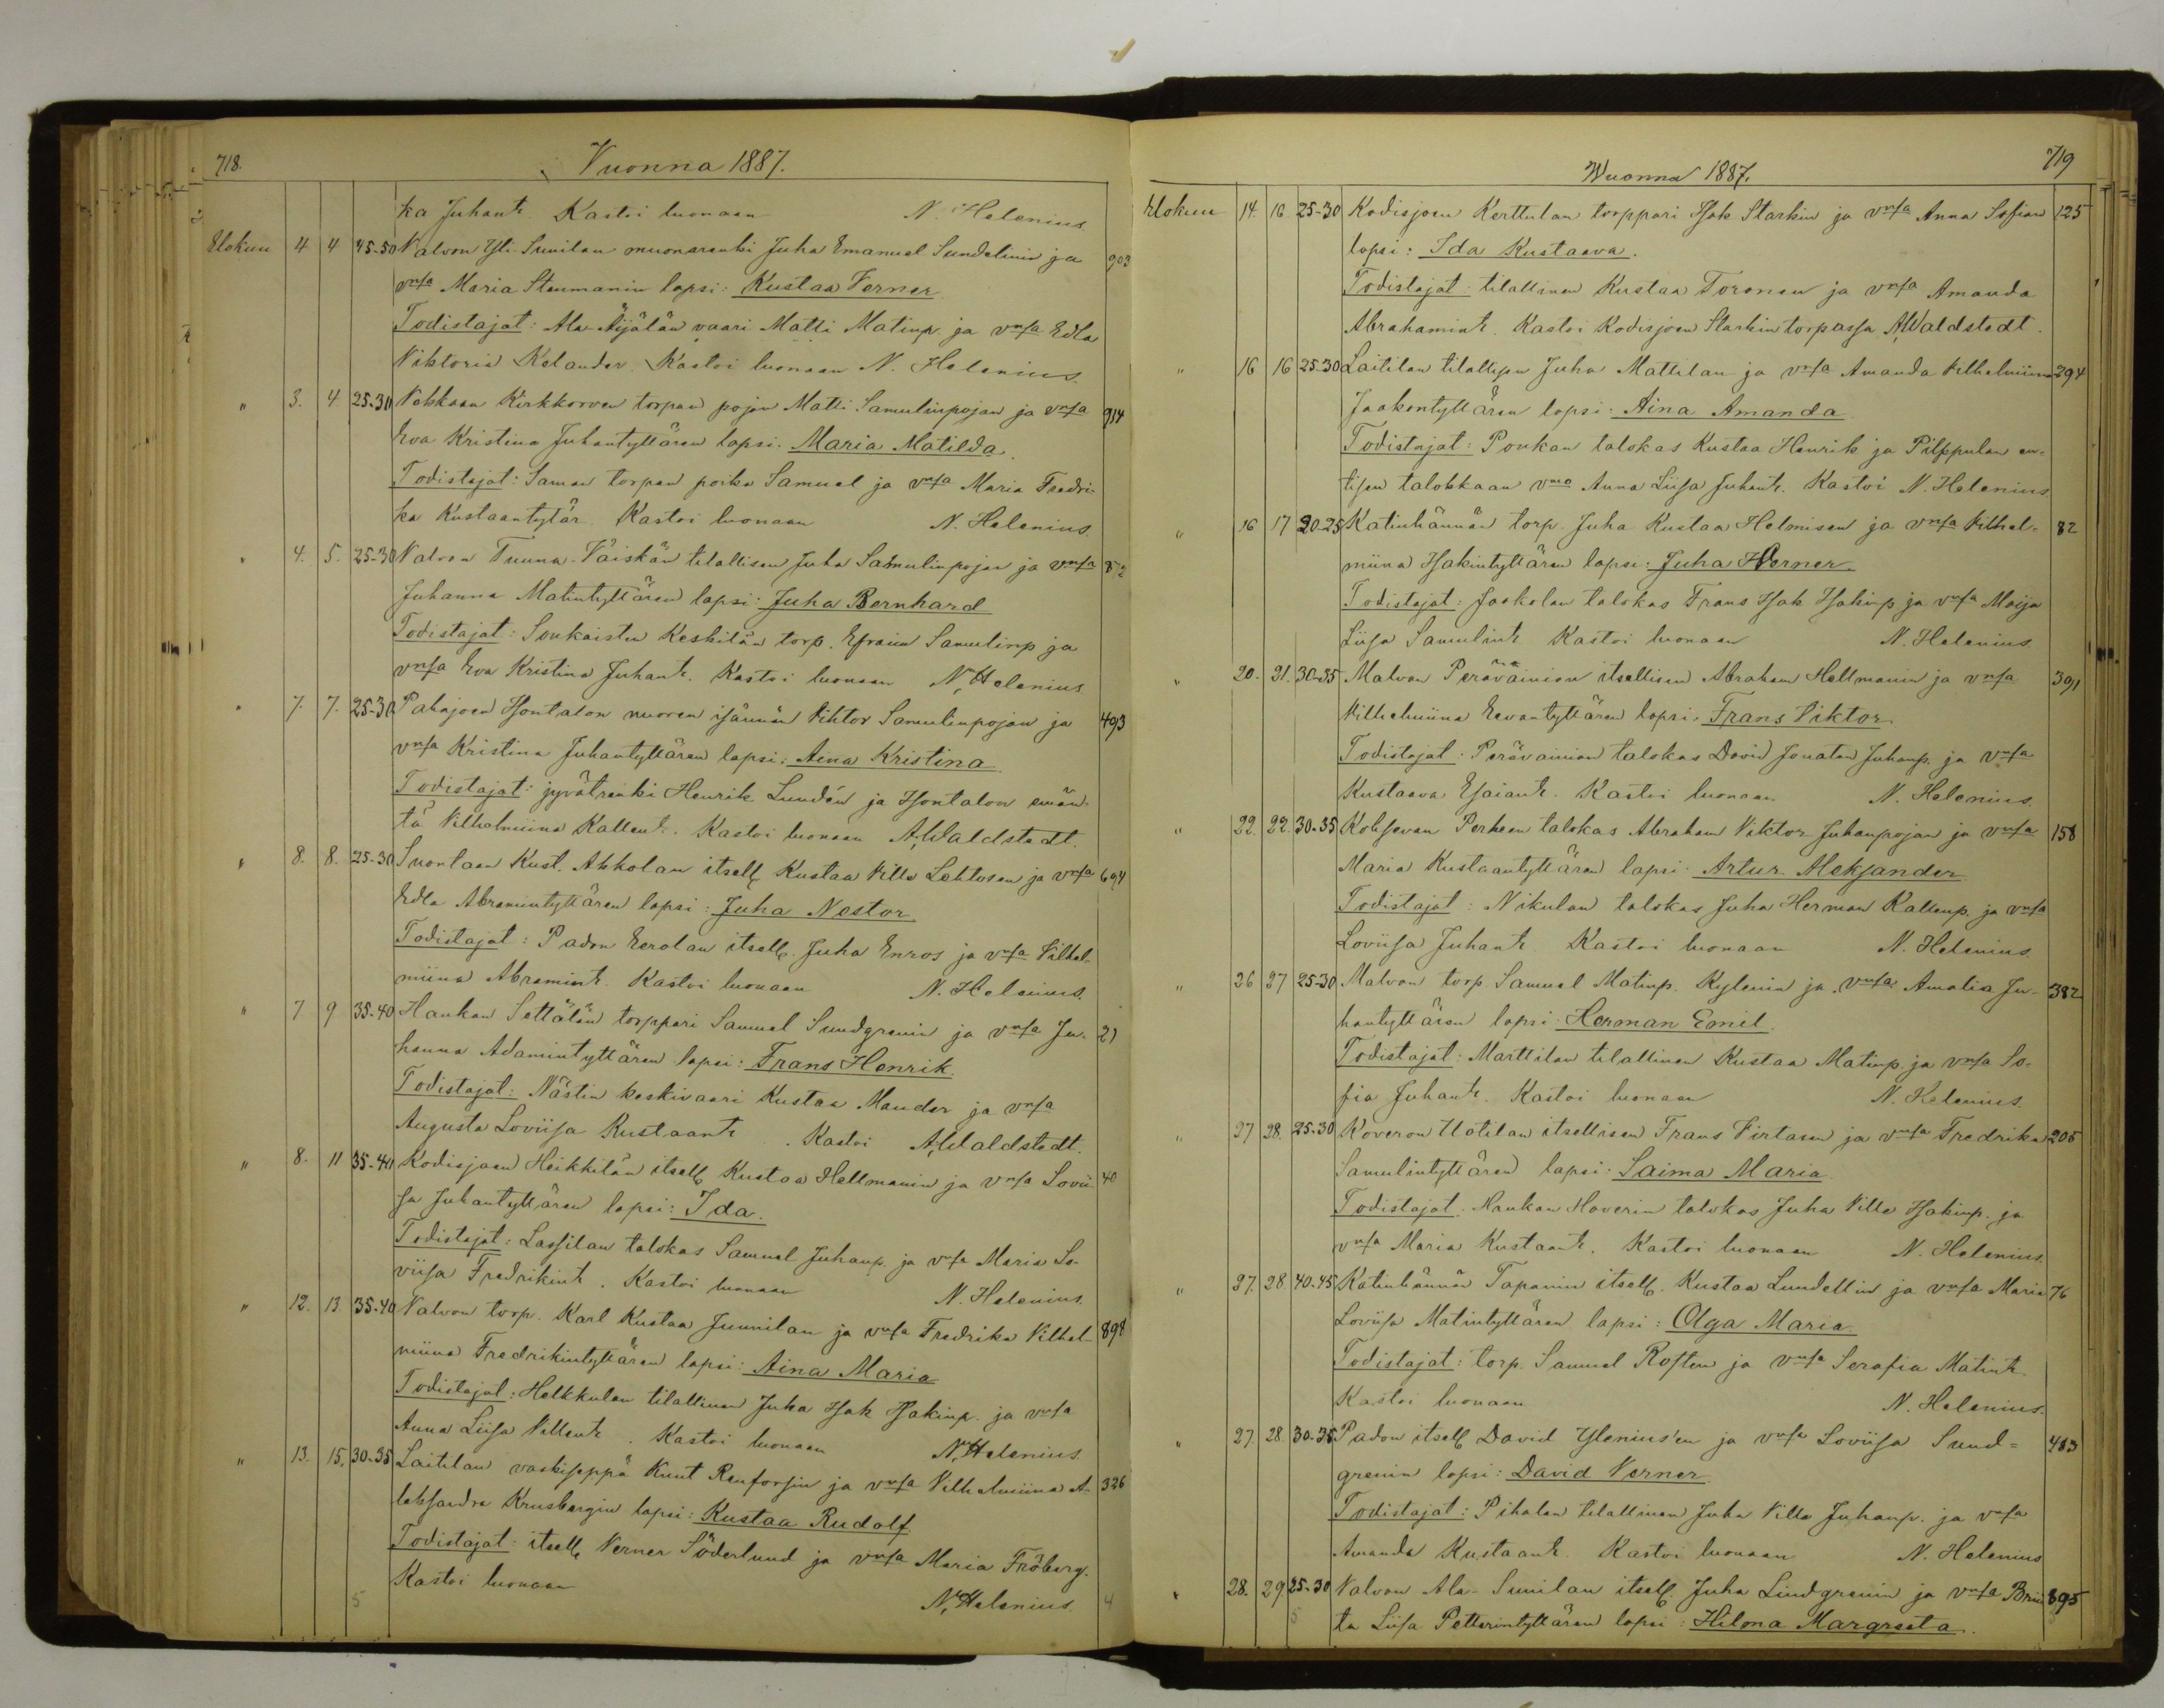 718.
Vuonna 1887.
ka Juhantr. Kastoi luonaan N. Helenius.
Elokuu 4 4 45-50 Valvon Yli-Sunilan muonarenki Juha Emanuel Sundelinin ja 903
vmsa Maria Stenmanin lapsi: Kustaa Verner
Todistajat: Ala-Äijälän vaari Matti Matinp. ja vmsa Edla
Viktoria Kelander. Kastoi luonaan N. Helenius.
" 3. 4. 25-30 Vehkaan Kirkkorven torpan pojan Matti Samulinpojan ja vmsa 914
Eva Kristina Juhantyttären lapsi: Maria Matilda.
Todistajat: Saman torpan poika Samuel ja vmsa Maria Fredri-
ka Kustaantytär. Kastoi luonaan N. Helenius.
" 4. 5. 25-30 Valvon Tuuna-Väiskän tilallisen Juha Samulinpojan ja vmsa
Juhanna Matintyttären lapsi: Juha Bernhard
Todistajat: Soukaisten Keskitän torp. Efraim Samulinp ja
vmsa Eva Kristina Juhantr. Kastoi luonaan N. Helenius
" 7. 7. 25-30 Pahajoen Isontalon nuoren isännän Vihtor Samulinpojan ja 493
vmsa Kristina Juhantyttären lapsi: Aina Kristina
Todistajat: jyvätrenki Henrik Lundén ja Isontalon emän-
tä Vilhelmiina Kallentr. Kastoi luonaan A. Waldstedt.
" 8. 8. 25-30 Suontaan Kust. Ahkolan itsell. Kustaa Ville Lehtosen ja vmsa 694
Edla Abramintyttären lapsi: Juha Nestor
Todistajat: Padon Eerolan itsell. Juha Enros ja vmsa Vilhel-
miina Abramintr. Kastoi luonaan N. Helenius.
" 7 9 35-40 Haukan Settälän torppari Samuel Sundgrenin ja vmsa Ju- 21
hanna Adamintyttären lapsi: Frans Henrik.
Todistajat: Nästin keskivaari Kustaa Mander ja vmsa
Augusta Loviisa Kustaantr. Kastoi A. Waldstedt.
" 8. 11 35-40 Kodisjoen Heikkilän itsell. Kustaa Hellmanin ja vmsa Lovii- 40
sa Juhantyttären lapsi: Ida.
Todistajat: Lassilan talokas Samuel Juhanp. ja vmsa Maria Lo-
viisa Fredrikintr. Kastoi luonaan N. Helenius.
" 12. 13. 35-40 Valvon torp. Karl Kustaa Junnilan ja vmsa Fredrika Vilhel- 898
miina Fredrikintyttären lapsi: Aina Maria
Todistajat: Helkkulan tilallinen Juha Isak Isakinp. ja vmsa
Anna Liisa Villentr. Kastoi luonaan N. Helenius.
" 13. 15. 30-35 Laitilan vaskiseppä Knut Renforsin ja vmsa Vilhelmiina A- 326
leksandra Krusbergin lapsi: Kustaa Rudolf
Todistajat: itsell. Verner Söderlund ja vmsa Maria Fröberg.
Kastoi luonaan N. Helenius.
5 4
Wuonna 1887.
719
Elokuu 14. 16. 25-30 Kodisjoen Kerttulan torppari Isak Starkin ja vmsa Anna Sofian 125
lapsi: Ida Kustaava.
Todistajat: tilallinen Kustaa Toronen ja vmsa Amanda
Abrahamintr. Kastoi Kodisjoen Starkin torpassa A. Waldstedt.
" 16 16 25-30 Laitilan tilallisen Juha Mattilan ja vmsa Amanda Vilhelmiina 394
Jaakontyttären lapsi: Aina Amanda
Todistajat: Poukan talokas Kustaa Henrik ja Pilppulan en-
tisen talokkaan vmo Anna Liisa Juhantr. Kastoi N. Helenius
" 16 17 20-25 Katinhännän torp. Juha Kustaa Helmisen ja vmsa Vilhel- 82
miina Isakintyttären lapsi: Juha Verner
Todistajat: Jaakolan talokas Frans Isak Isakinp ja vmsa Maija
Liisa Samulintr. Kastoi luonaan N. Helenius.
" 20. 21. 30-35 Malvon Perävainion itsellisen Abraham Hellmanin ja vmsa 391
Vilhelmiina Eevantyttären lapsi: Frans Viktor
Todistajat: Perävainion talokas David Jonatan Juhanp. ja vmsa
Kustaava Esaiantr. Kastoi luonaan N. Helenius.
" 22. 22. 30-35 Kolsjevan Perheen talokas Abraham Viktor Juhanpojan ja vmsa 158
Maria Kustaantyttären lapsi: Artur Aleksander
Todistajat: Nikulan talokas Juha Herman Kallenp. ja vmsa
Loviisa Juhantr. Kastoi luonaan N. Helenius.
" 26 27 25-30 Malvon torp. Samuel Matinp. Kylenin ja vmsa Amalia Ju- 382
hantyttären lapsi: Herman Emil.
Todistajat: Marttilan tilallinen Kustaa Matinp. ja vmsa So-
fia Juhantr. Kastoi luonaan N. Helenius.
" 27 28. 25-30 Koveron Uotilan itsellisen Frans Virtasen ja vmsa Fredrika 205
Samulintyttären lapsi: Saima Maria
Todistajat: Haukan Hoverin talokas Juha Ville Isakinp. ja
vmsa Maria Kustaantr. Kastoi luonaan N. Helenius.
" 27. 28. 40-45 Katinhännän Tapanin itsell. Kustaa Lundellin ja vmsa Maria 76
Loviisa Matintyttären lapsi: Olga Maria.
Todistajat: torp. Samuel Rosten ja vmsa Serafia Matintr.
Kastoi luonaan N. Helenius.
" 27. 28. 30-35 Padon itsell. David Ylenius'en ja vmsa Loviisa Sund- 483
grenin lapsi: David Verner
Todistajat: Pihalan tilallinen Juha Ville Juhanp. ja vmsa
Amanda Kustaantr. Kastoi luonaan N. Helenius
" 28. 29 25-30 Valvon Ala-Sunilan itsell. Juha Lindgrenin ja vmsa Brii- 895
ta Liisa Petterintyttären lapsi: Hilma Margreeta.
5